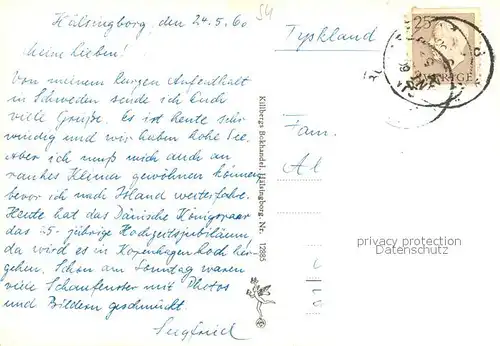 Hälsingborg, den 24.5.60
54
Meine Lieben!
Von meinem kurzen Aufenthalt
in Schweden sende ich Euch
viele Grüße. Es ist heute sehr
windig und wir haben hohe See.
Aber ich muß mich auch an
rauhes Klima gewöhnen können
bevor ich nach Island weiterfahre.
Heute hat das Dänische Königspaar
das 25-jährige Hochzeitsjubiläum
da wird es in Kopenhagen hoch her-
gehen. Schon am Sonntag waren
viele Schaufenster mit Photos
und Bildern geschmückt.
Siegfried
Killbergs Bokhandel, Hälsingborg. Nr. 12885
Tyskland
25
SVERIGE
Fam.
Al
privacy protection
Datenschutz